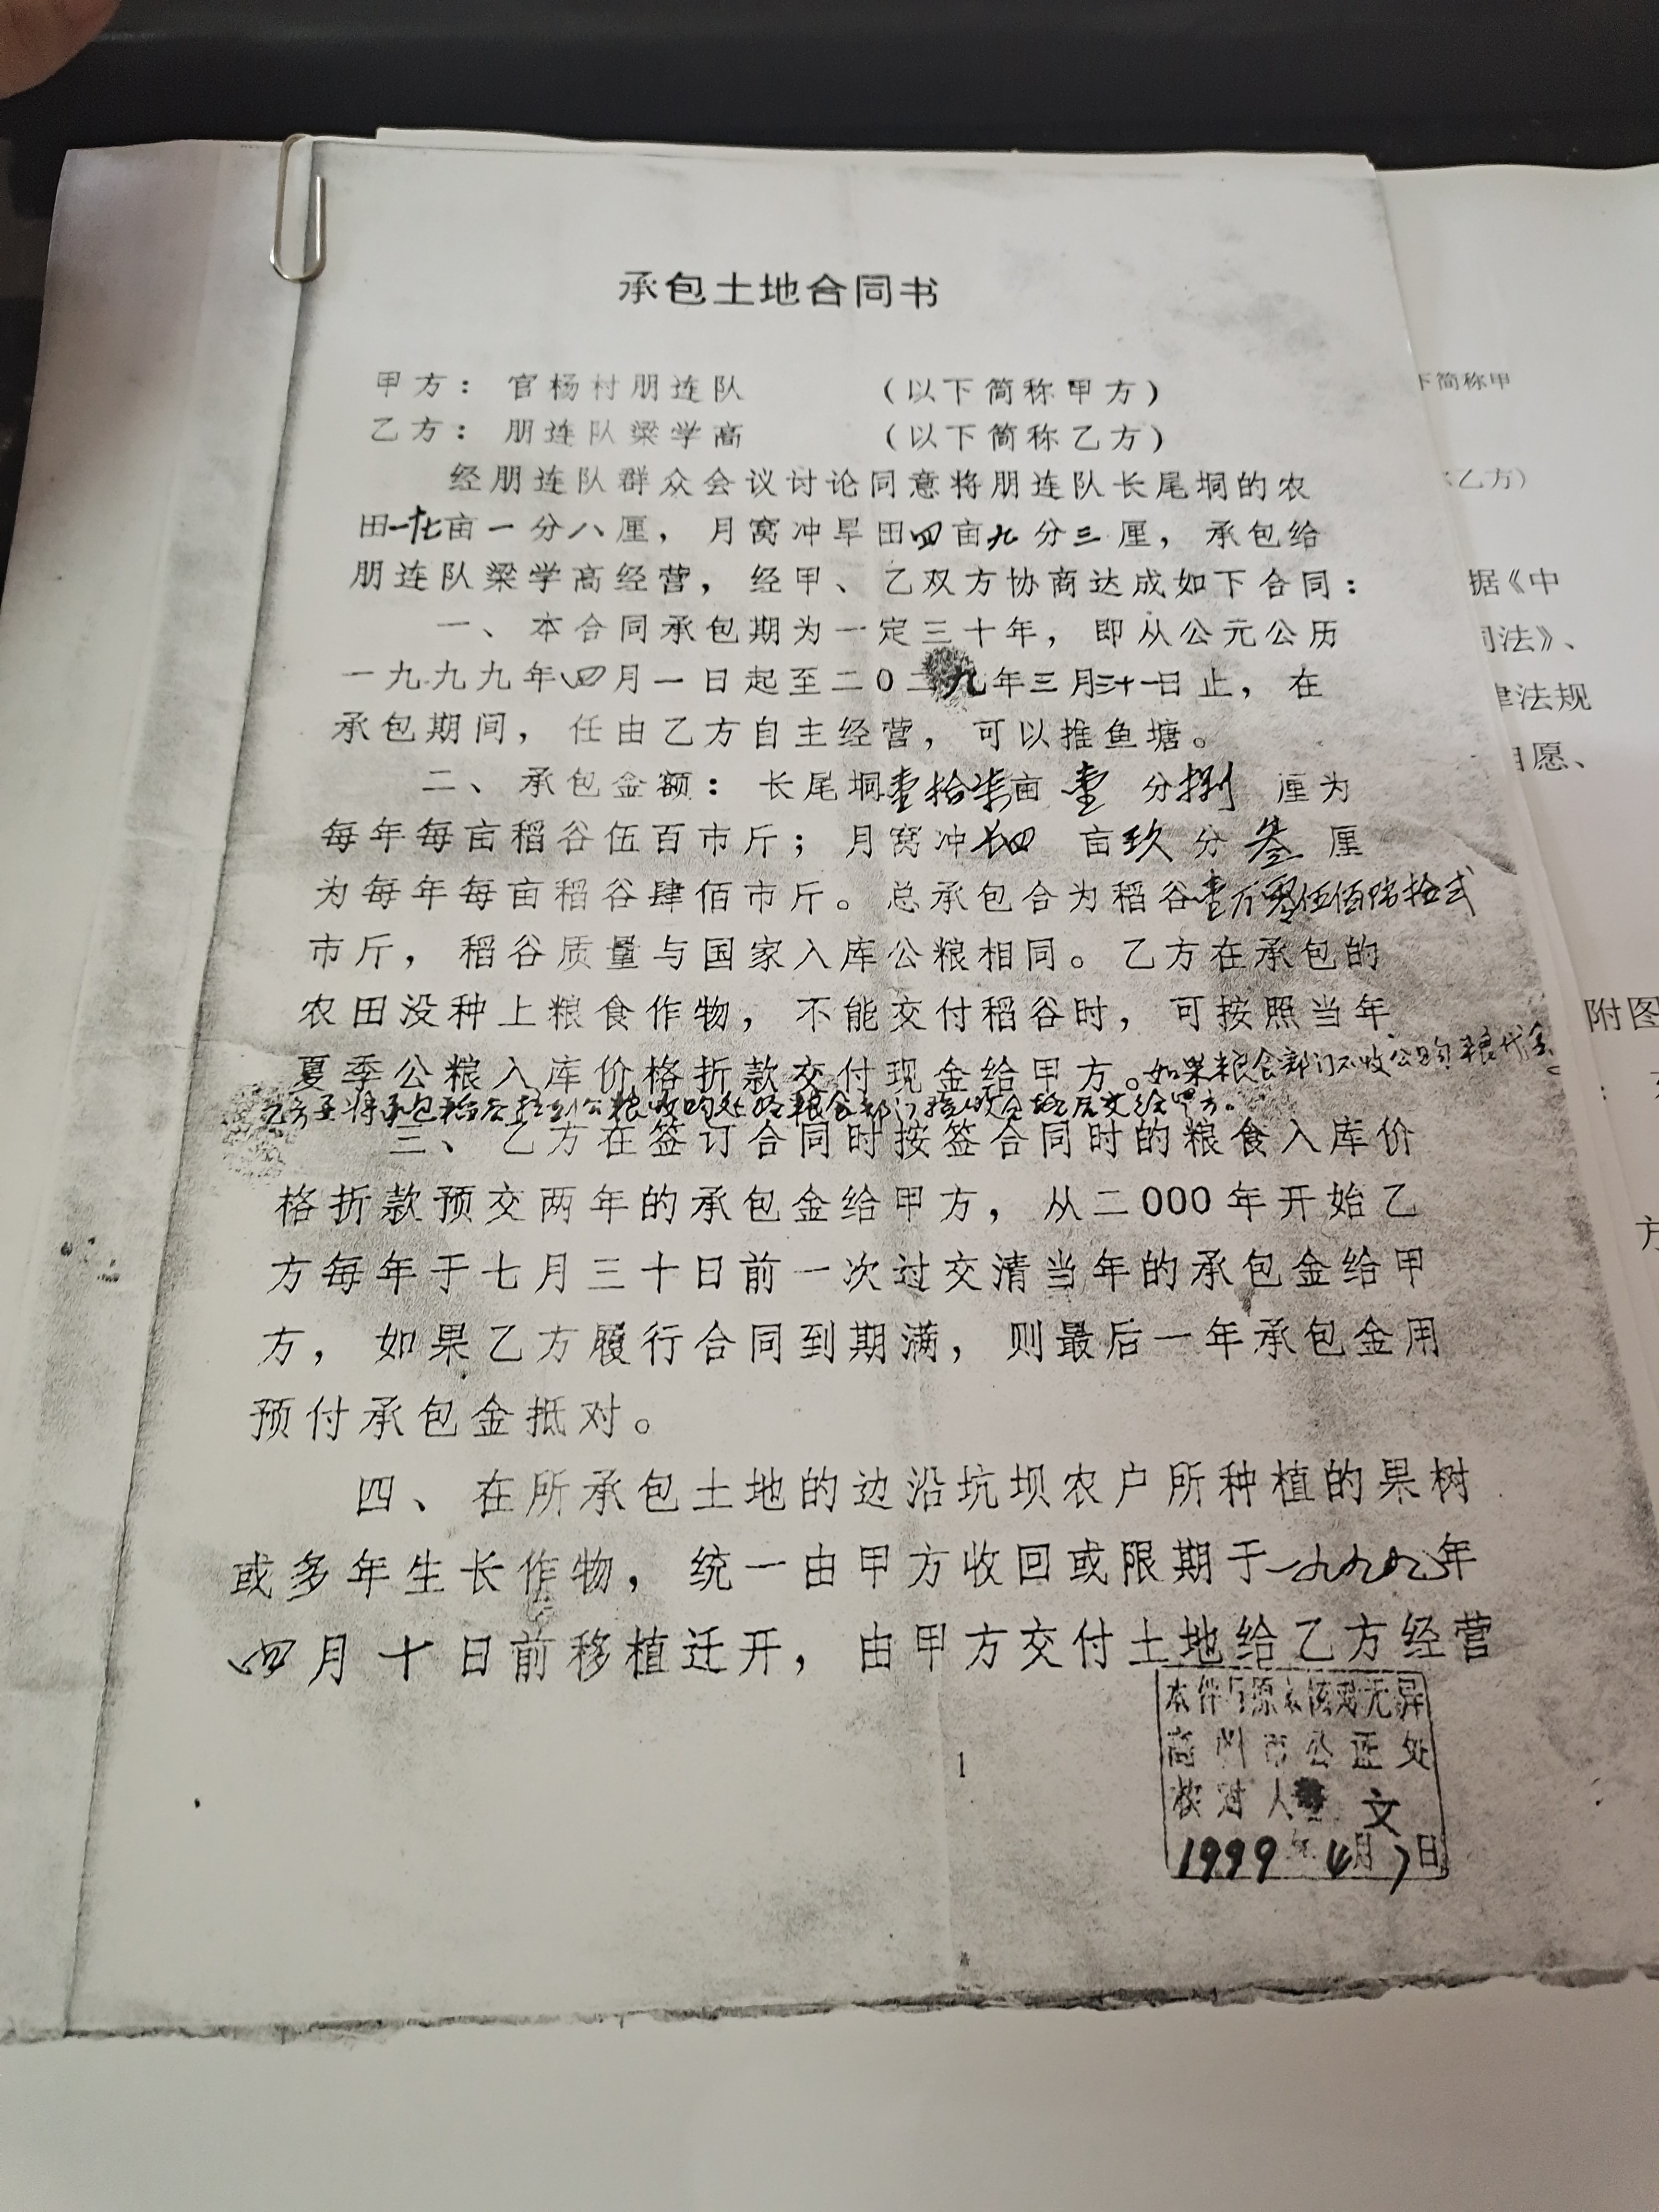 承包土地合同书
甲方：官杨村朋连队（以下简称甲方）
乙方：朋连队梁学高（以下简称乙方）
经朋连队群众会议讨论同意将朋连队长尾垌的农
田一十七亩一分八厘，月窝冲旱田四亩九分三厘，承包给
朋连队梁学高经营，经甲、乙双方协商达成如下合同：
一、本合同承包期为一定三十年，即从公元公历
一九九九年四月一日起至二0二九年三月三十一日止，在
承包期间，任由乙方自主经营，可以推鱼塘。
二、承包金额：长尾垌壹拾柒亩壹分捌厘为
每年每亩稻谷伍百市斤；月窝冲四亩玖分叁厘
为每年每亩稻谷肆佰市斤。总承包合为稻谷壹万零伍佰陆拾弍
市斤，稻谷质量与国家入库公粮相同。乙方在承包的
农田没种上粮食作物，不能交付稻谷时，可按照当年
夏季公粮入库价格折款交付现金给甲方。如果粮食部门不收公购粮代金
乙方要将承包稻谷拉到公粮收购处给粮食部门接收后交给甲方。
三、乙方在签订合同时按签合同时的粮食入库价
格折款预交两年的承包金给甲方，从二000年开始乙
方每年于七月三十日前一次过交清当年的承包金给甲
方，如果乙方履行合同到期满，则最后一年承包金用
预付承包金抵对。
四、在所承包土地的边沿坑坝农户所种植的果树
或多年生长作物，统一由甲方收回或限期于一九九九年
四月十日前移植迁开，由甲方交付土地给乙方经营
本件与原本核对无异
高州市公证处
核对人 文
1999年4月7日
1
下简称甲
乙方）
据《中
司法》、
律法规
自愿、
附图
方